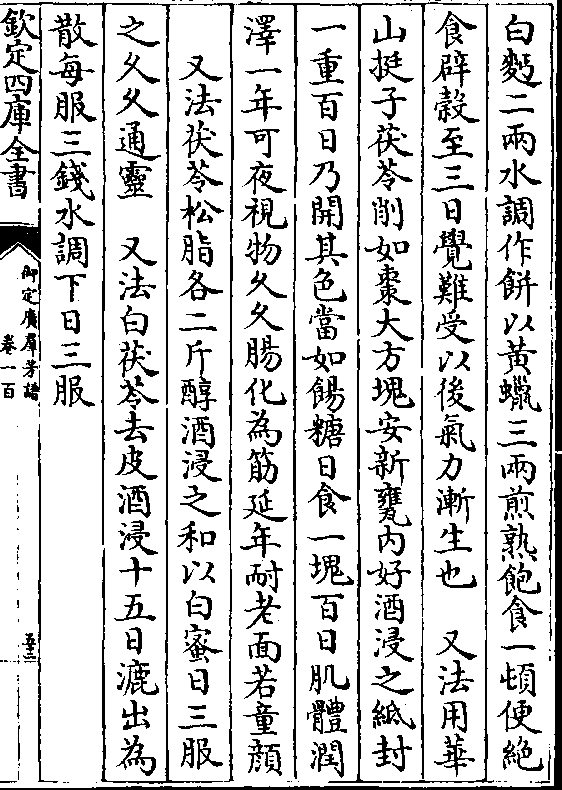 白麪二兩水調作餅以黃蠟三兩煎熟飽食一頓便絶
食辟穀至三日覺難受以後氣力漸生也　又法用華
山挺子茯苓削如棗大方塊安新甕内好酒浸之紙封
一重百日乃開其色當如餳糖日食一塊百日肌體潤
澤一年可夜視物久久腸化為筋延年耐老面若童顔
又法茯苓松脂各二斤醇酒浸之和以白蜜日三服
之久久通靈　又法白茯苓去皮酒浸十五日漉出為
散每服三錢水調下日三服
欽定四庫全書
御定廣羣芳譜
卷一百
五十三